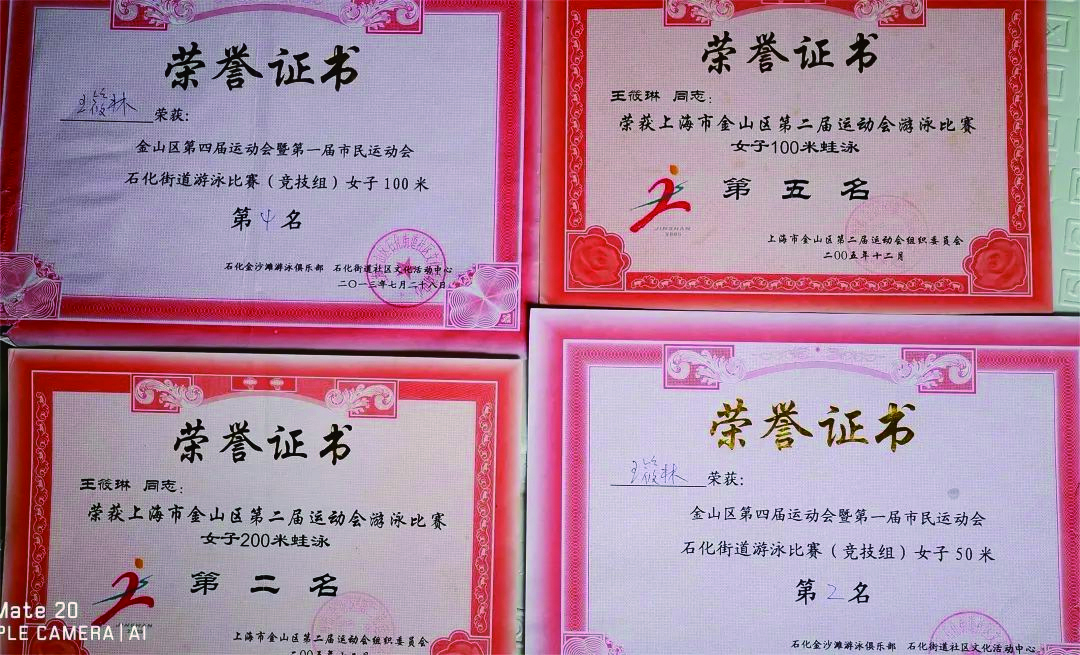 荣誉证书
王筱林 荣获:
金山区第四届运动会暨第一届市民运动会
石化街道游泳比赛（竞技组）女子100米
第4名
石化金沙滩游泳俱乐部 石化街道社区文化活动中心
二〇一三年七月二十八日
荣誉证书
王筱琳 同志:
荣获上海市金山区第二届运动会游泳比赛
女子100米蛙泳
第五名
JINSHAN
2005
上海市金山区第二届运动会组织委员会
二〇〇五年十二月
荣誉证书
王筱琳 同志:
荣获上海市金山区第二届运动会游泳比赛
女子200米蛙泳
第二名
JINSHAN
上海市金山区第二届运动会组织委员会
二〇〇五年十二月
荣誉证书
王筱林 荣获:
金山区第四届运动会暨第一届市民运动会
石化街道游泳比赛（竞技组）女子50米
第2名
石化金沙滩游泳俱乐部 石化街道社区文化活动中心
Mate 20
PLE CAMERA|AI